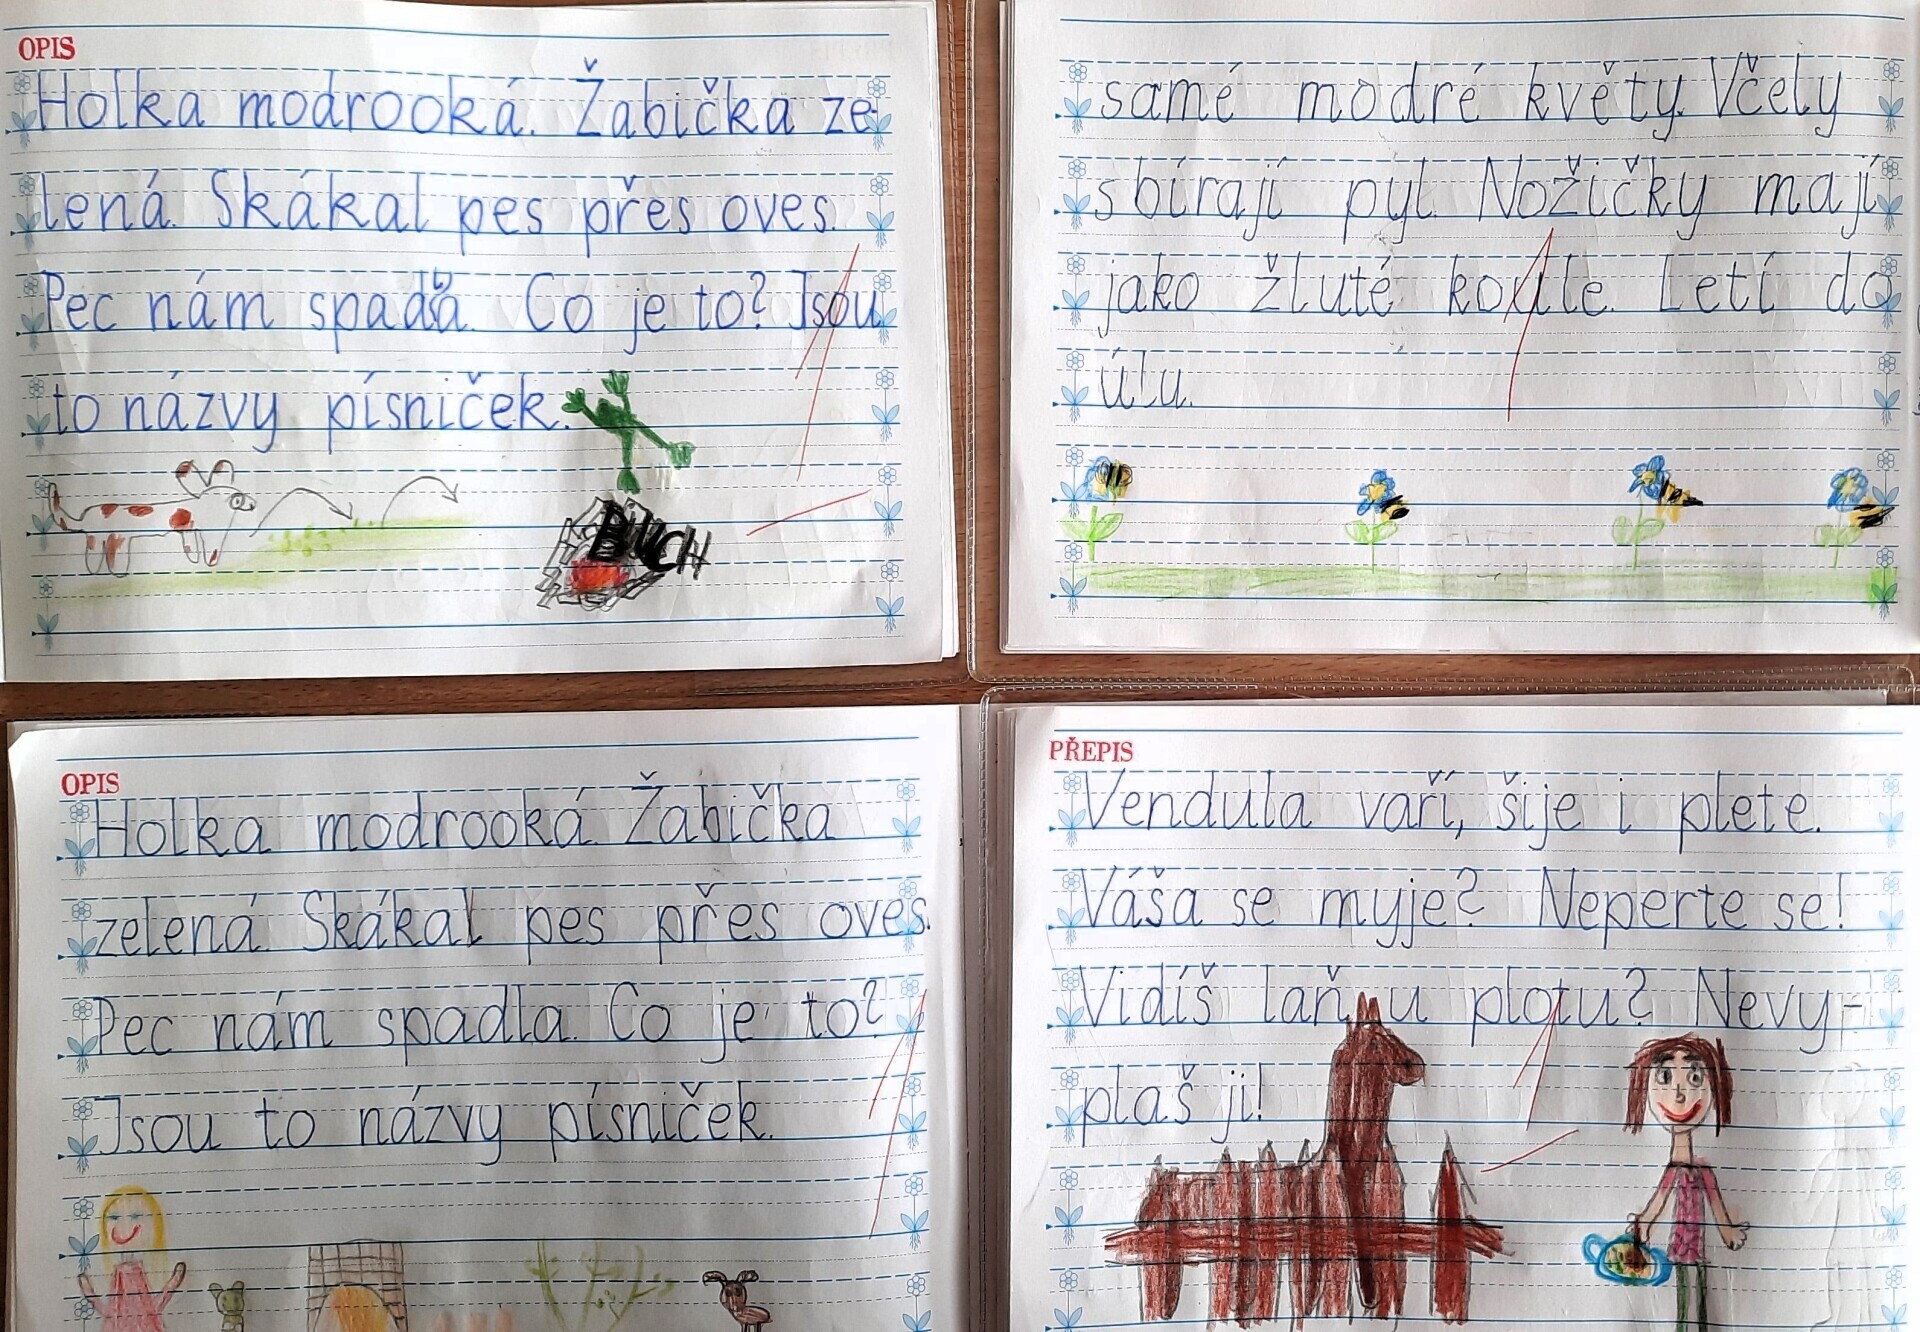 OPIS
Holka modrooká. Žabička ze-
lená. Skákal pes přes oves.
Pec nám spadla. Co je to? Jsou
to názvy písniček.
BUCH
samé modré květy. Včely
sbírají pyl. Nožičky mají
jako žluté koule. Letí do
úlu.
OPIS
Holka modrooká. Žabička
zelená. Skákal pes přes oves.
Pec nám spadla. Co je to?
Jsou to názvy písniček.
PŘEPIS
Vendula vaří, šije i plete.
Váša se myje? Neperte se!
Vidíš laň u plotu? Nevy-
plaš ji!